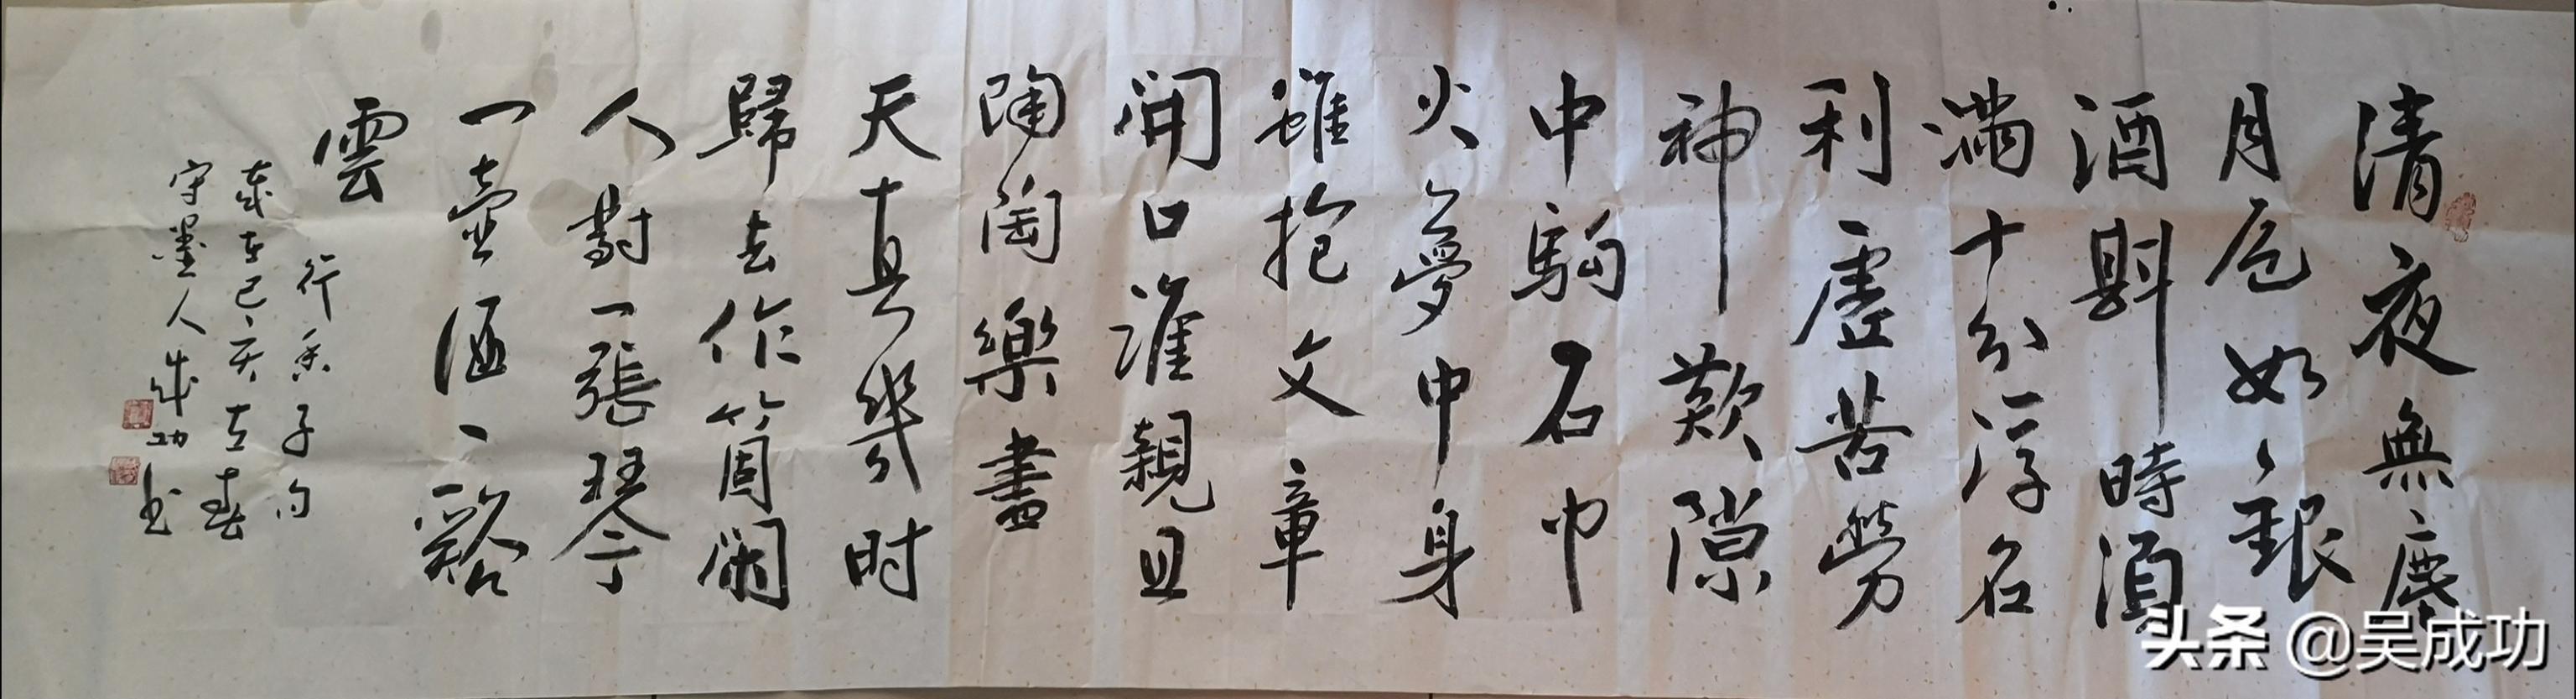 清夜無塵
月色如銀
酒斟時須
滿十分浮名
利虛苦勞
神歎隙
中駒石中
火夢中身
雖抱文章
開口誰親且
陶陶樂盡
天真幾时
歸去作箇閑
人對一張琴
一壺酒一谿
雲
行香子句
歲在己亥立春
守墨人成功书
头条 @吴成功